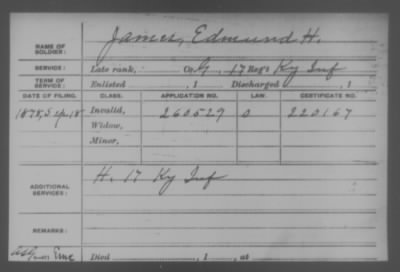 NAME OF SOLDIER: James, Edmund H.
SERVICE: Late rank, Co. G, 17 Reg't Ky Inf
TERM OF SERVICE: Enlisted , 1 Discharged , 1
DATE OF FILING. CLASS. APPLICATION NO. LAW. CERTIFICATE NO.
1878, Sep. 18 Invalid, 260529 220167
Widow,
Minor,
ADDITIONAL SERVICES: H. 17 Ky Inf
REMARKS:
Died , 1 , at